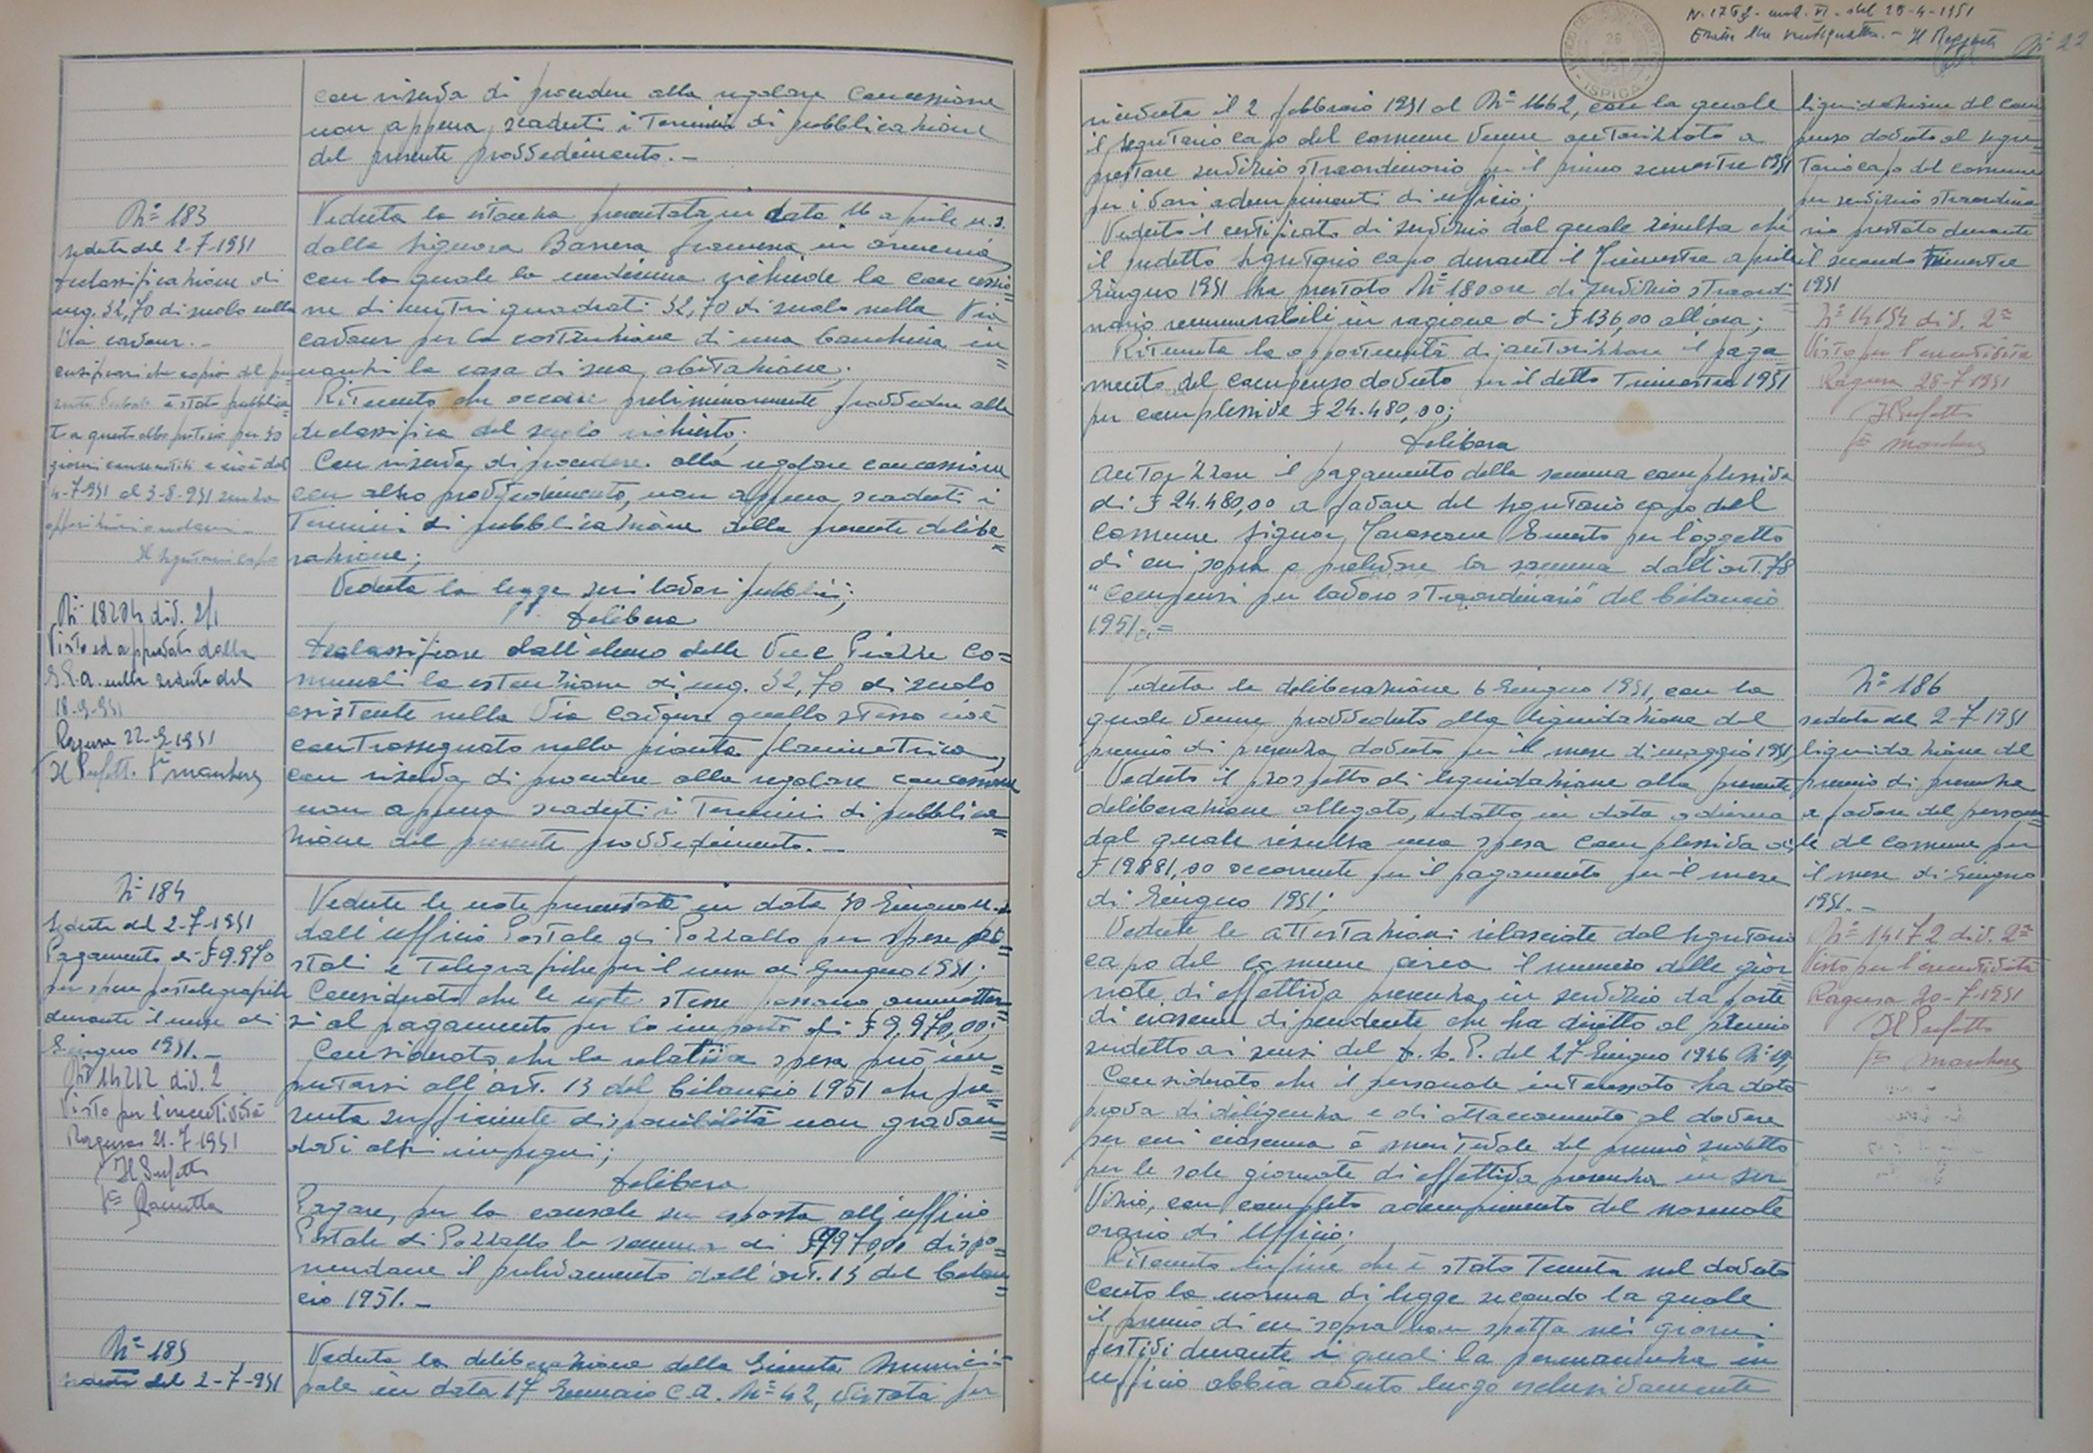 con riserva di procedere alla regolare concessione
non appena scaduti i termini di pubblicazione
del presente provvedimento. -
Nº 183
seduta del 2-7-1951
declassificazione di
mq. 32,70 di suolo nella
Via Cavour. -
4-7-951 al 3-8-951 senza
opposizioni
Il Segretario capo
Nº 18204 div. 2/1
Visto ed approvato dalla
G.P.A. nella seduta del
18-9-951
Ragusa 22-9-1951
Il Prefetto
Veduta la istanza presentata in data 16 aprile u.s.
dalla signora Barrera
con la quale la medesima richiede la concessio=
ne di metri quadrati 32,70 di suolo nella Via
Cavour per la costruzione di una banchina in=
nanzi la casa di sua abitazione;
Ritenuto che occorre preliminarmente provvedere alla
declassifica del suolo richiesto;
Con riserva di procedere alla regolare concessione
con altro provvedimento, non appena scaduti i
termini di pubblicazione della presente delibe=
razione;
Veduta la legge sui lavori pubblici;
delibera
declassificare dall'elenco delle Vie e Piazze Co=
munali la estenzione di mq. 32,70 di suolo
esistente nella Via Cavour quello stesso cioè
contrassegnato nella pianta planimetrica,
con riserva di procedere alla regolare concessione
non appena scaduti i termini di pubblica=
zione del presente provvedimento. -
Nº 184
Seduta del 2-7-1951
Pagamento di £ 9.970
per spese postelegrafiche
durante il mese di
Giugno 1951. -
Nº 14212 div. 2
Visto per l'esecutività
Ragusa 21-7-1951
Il Prefetto
Vedute le note presentate in data 30 Giugno u.s.
dall'ufficio Postale di Pozzallo per spese po=
stali e telegrafiche per il mese di Giugno 1951;
Considerato che le note stesse possono ammetter=
si al pagamento per lo importo di £ 9.970,00;
Considerato che la relativa spesa può im=
putarsi all'art. 13 del bilancio 1951 che pre=
senta sufficiente disponibilità non gravan=
dovi altri impegni;
delibera
Pagare, per la causale su esposta all'ufficio
Postale di Pozzallo la somma di £ 9970,00 dispo=
nendone il prelevamento dall'art. 13 del bilan=
cio 1951. -
Nº 185
seduta del 2-7-951
Veduta la deliberazione della Giunta Munici=
pale in data 17 Gennaio c.a. Nº 42, vistata per
ricevuta il 2 febbraio 1951 al Nº 1662, con la quale
il segretario capo del comune venne autorizzato a
prestare servizio straordinario per il primo semestre 1951
per i vari adempimenti di ufficio;
Veduto il certificato di servizio dal quale risulta che
il sudetto segretario capo durante il Trimestre aprile
Giugno 1951 ha prestato Nº 180 ore di servizio straordi
nario remunerabili in ragione di £ 136,00 all'ora;
Ritenuta la opportunità di autorizzare il paga
mento del compenso dovuto per il detto Trimestre 1951
per complessive £ 24.480,00;
delibera
autorizzare il pagamento della somma complessiva
di £ 24.480,00 a favore del segretario capo del
comune signor Ernesto per l'oggetto
di cui sopra e prelevare la somma dall'art. 78
"Compensi per lavoro straordinario" del bilancio
1951. =
liquidazione del com
penso dovuto al segre=
tario capo del comune
per servizio straordina
rio prestato durante
il secondo trimestre
1951
Nº 14154 div. 2ª
Visto per l'esecutività
Ragusa 28-7-1951
Il Prefetto
Veduta la deliberazione 6 Giugno 1951, con la
quale venne provveduto alla liquidazione del
premio di presenza dovuto per il mese di maggio 1951
Veduto il prospetto di liquidazione alla presente
deliberazione allegato, redatto in data odierna
dal quale risulta una spesa complessiva di
occorrente per il pagamento per il mese
di Giugno 1951;
Vedute le attestazioni rilasciate dal segretario
capo del comune circa il numero delle gior
nate di effettiva presenza in servizio da parte
di ciascun dipendente che ha diritto al premio
sudetto ai sensi del D.L.P. del 27 Giugno 1946 Nº 19;
Considerato che il personale interessato ha dato
prova di diligenza e di attaccamento al dovere
per cui ciascuno è meritevole del premio sudetto
per le sole giornate di effettiva presenza in ser
vizio, con completo adempimento del normale
orario di Ufficio;
Ritenuto infine che è stato tenuto nel dovuto
conto la norma di legge secondo la quale
il premio di cui sopra non spetta nei giorni
festivi durante i quali la permanenza in
ufficio abbia avuto luogo esclusivamente
Nº 186
seduta del 2-7-1951
liquidazione del
premio di presenza
a favore del persona=
le del comune per
il mese di Giugno
1951. -
Nº 14172 div. 2ª
Visto per l'esecutività
Ragusa 20-7-1951
Il Prefetto
ISPICA